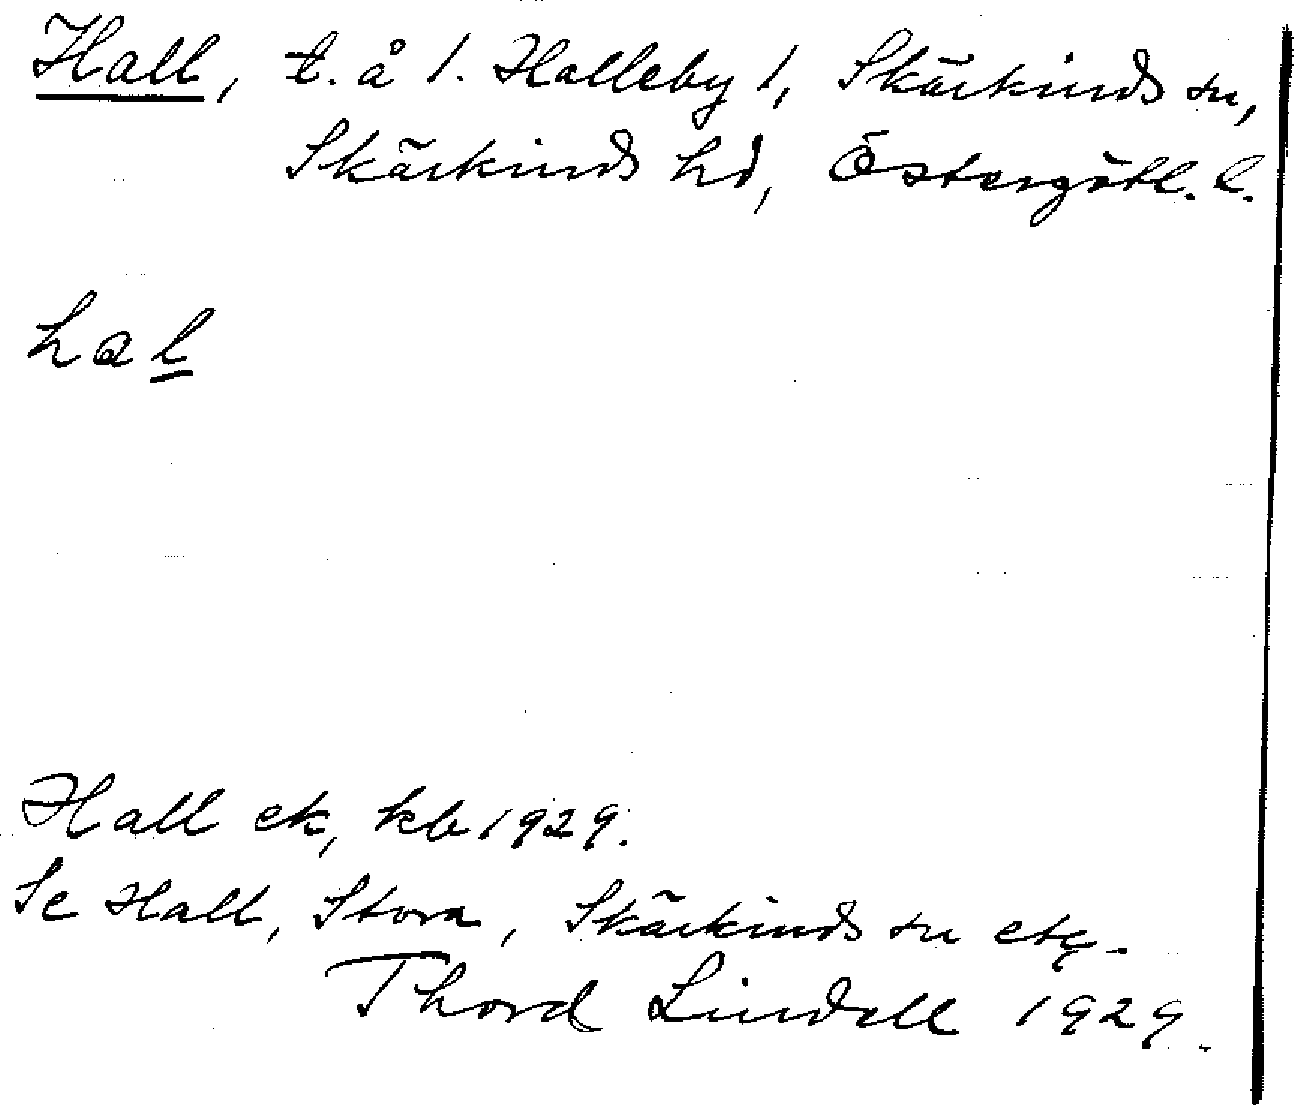 Hall, t. å 1. Halleby 1, Skärkinds sn,
Skärkinds hd, Östergötl. l.
hal
Hall ek, kb 1929.
Se Hall, Stora, Skärkinds sn etc.
Thord Lindell 1929.